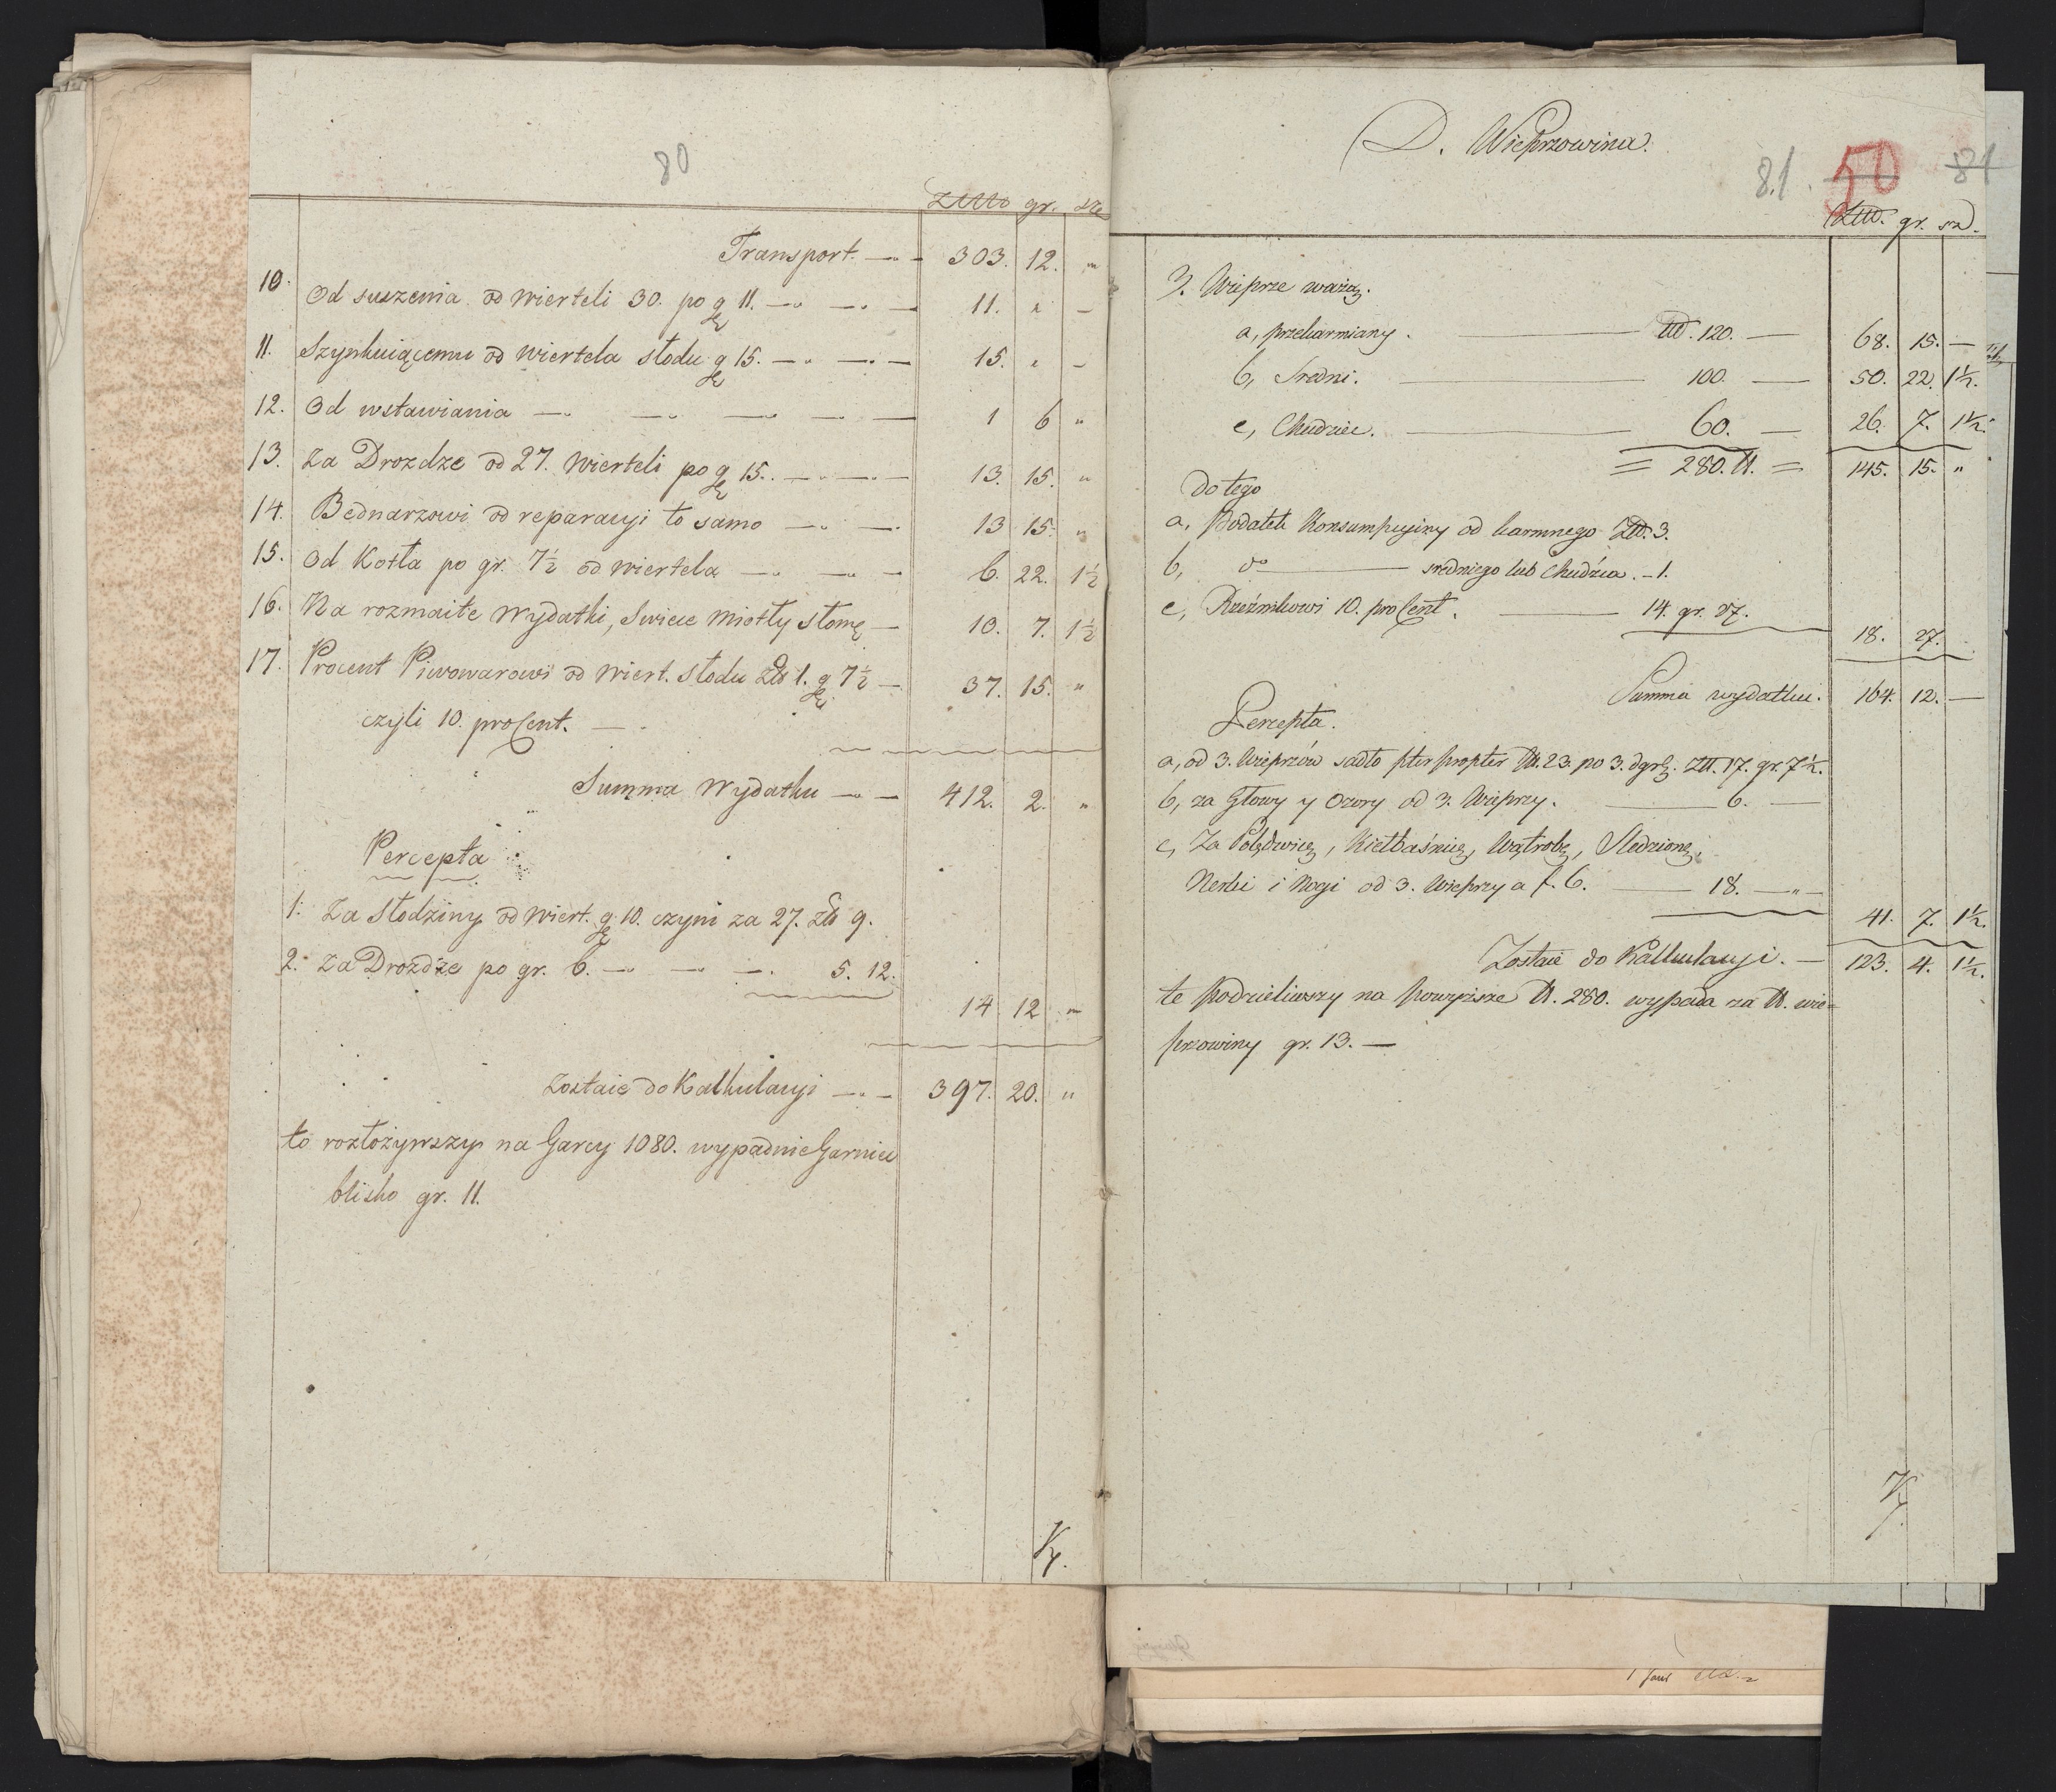 80
Złtto gr. sze
Transport. 303. 12. "
10. Od suszenia od wierteli 30. po g 11. 11. " -
11. Szynkuiącemu od wiertela słodu g 15. 15. " -
12. Od wstawiania 1 6 "
13. Za Drozdze od 27. wierteli po g 15. 13. 15. "
14. Bednarzowi od reparacyi to samo 13 15. "
15. Od Kotła po gr. 7½ od wiertela 6. 22. 1½
16. Na rozmaite wydatki, Swiece Miotły słomę 10. 7. 1½
17. Procent Piwowarowi od wiert. słodu Zło 1. g 7½ 37. 15. "
czyli 10. proCent.
Summa Wydatku 412. 2. "
Percepta
1. Za Słodziny od wiert. g 10. czyni za 27. zło 9.
2. Za Drozdze po gr. 6. 5. 12.
14 12 "
Zostaie do Kalkulacyi 397. 20. "
to rozłożywszy na Garcy 1080. wypadnie Garniec
blisko gr. 11.
D. Wieprzowina.
81. 50 81
Złł. gr. sz.
3. Wieprze ważą.
a, przekarmiany. ℔. 120. 68. 15. —
b, Sredni. 100. 50. 22. 1½.
c, Chudziec. 60. 26. 7. 1½.
= 280. ℔. = 145. 15. "
do tego
a, Podatek Konsumpcyiny od karmnego Złł. 3.
b, do sredniego lub Chudźca. - 1.
c, Rzeźnikowi 10. proCent. 14. gr. 27.
18. 27.
Summa wydatku. 164. 12. —
Percepta.
a, od 3. Wieprzów sadło pter propter ℔. 23. po 3. dgrß. Złł. 17. gr. 7½.
b, za Głowy y Ozory od 3. Wieprzy. 6. —
c, Za Polędwicę, Kiełbaśnicę, Wątrobę, Sledzionę,
Nerki i Nogi od 3. Wieprzy a f. 6. 18. "
41. 7. 1½.
Zostaie do Kalkulacyi. — 123. 4. 1½.
te podzieliwszy na powyższe ℔. 280. wypada za ℔. wie=
przowiny gr. 13. —